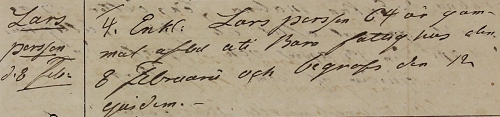 Lars
persson
d. 8 Feb:
4. Enkl. Lars persson 64 år gam-
mal afled uti Bara fattighus den
8 Februarii och begrofs den 12
ejusdem. -